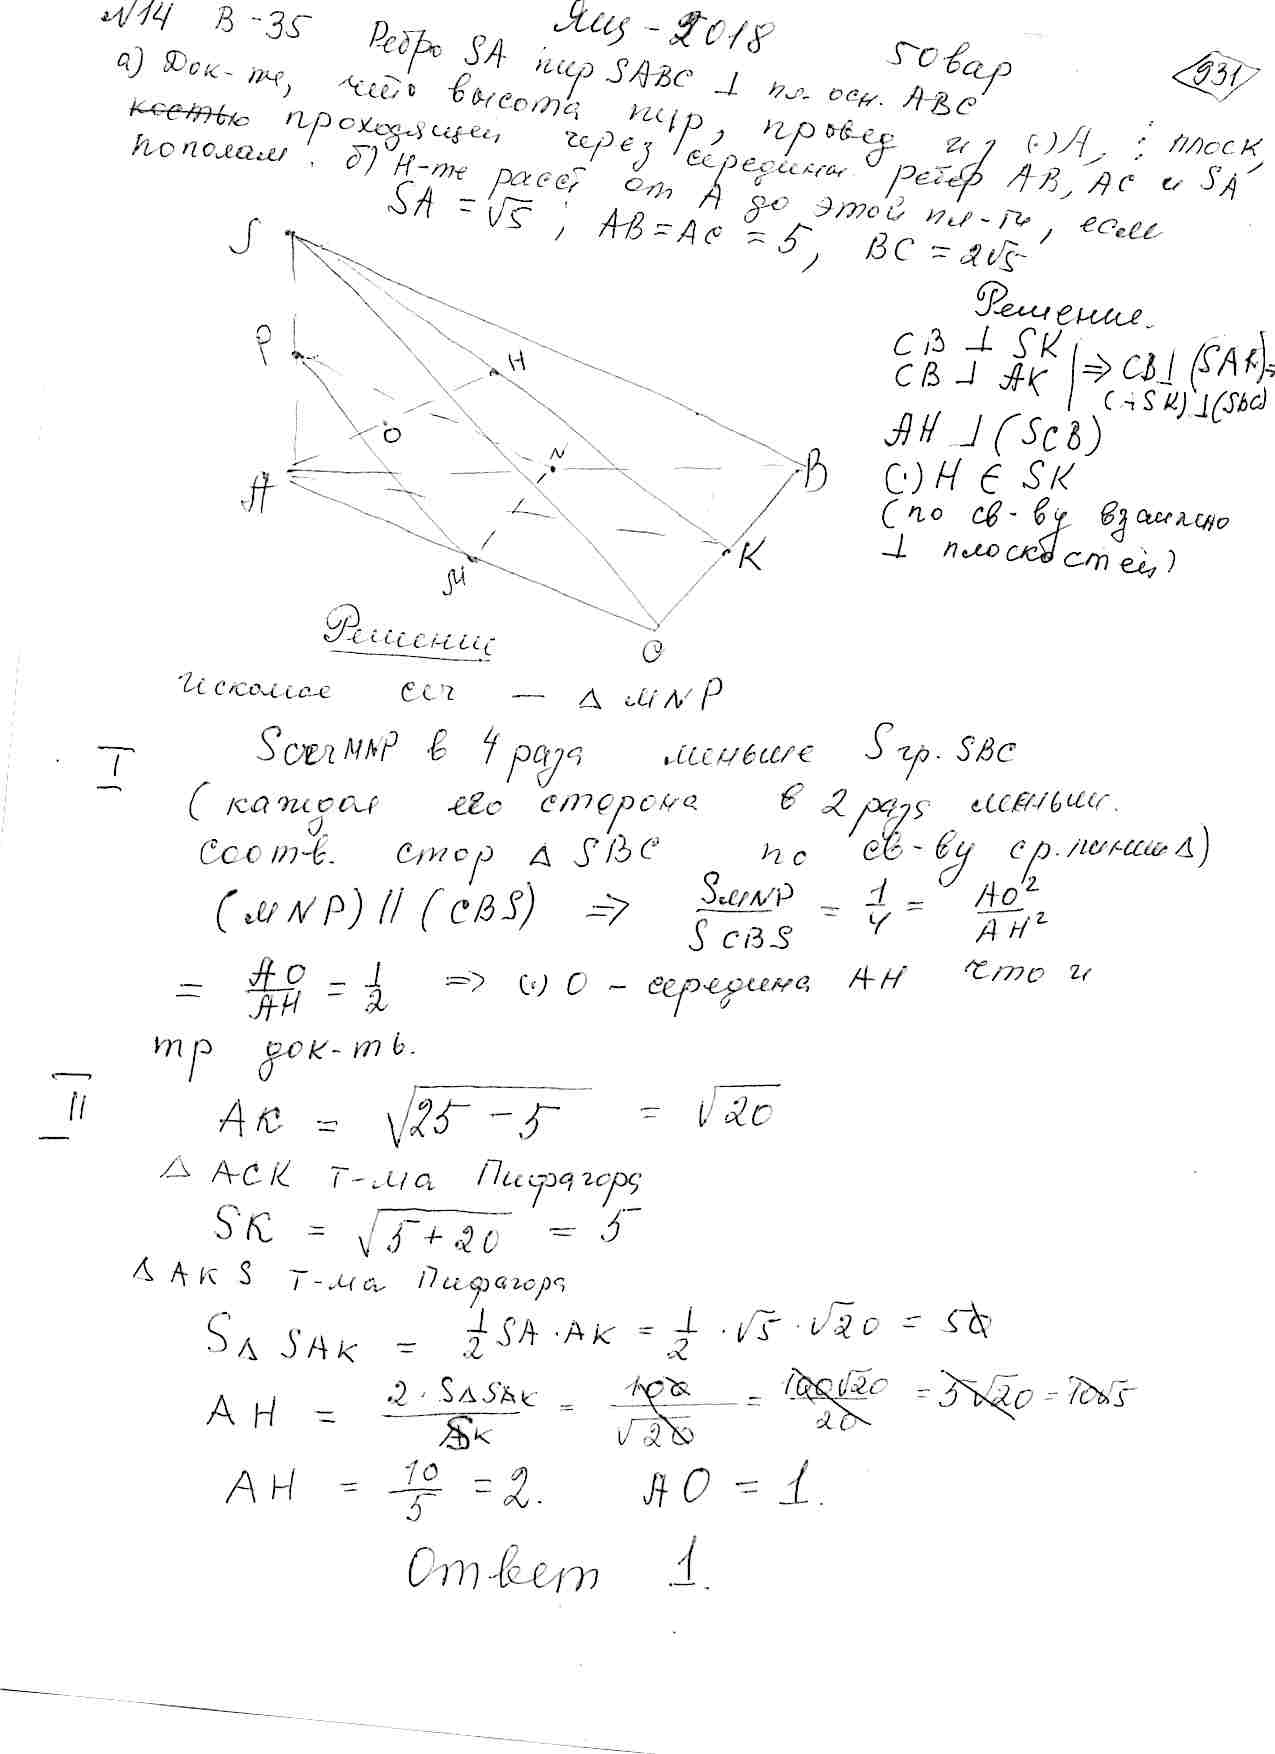 №14 В-35 Ящ-2018 50вар
931
Ребро SA пир SABC ⊥ пл. осн. ABC
а) Док-те, что высота пир, провед из (·)A, : плоск,
проходящей через середины ребер AB, AC и SA
пополам. б) Н-те расст от A до этой пл-ти, если
SA = √5; AB = AC = 5, BC = 2√5
S
P
H
O
N
A
B
M
K
C
Решение.
CB ⊥ SK
CB ⊥ AK | ⇒ CB ⊥ (SAK) ⇒
(SBC)
AH ⊥ (SCB)
(·) H ∈ SK
(по св-ву взаимно
⊥ плоскостей)
Решение
Искомое сеч — △ MNP
I Sсеч MNP в 4 раза меньше S гр. SBC
(каждая его сторона в 2 раза меньш.
соотв. стор △ SBC по св-ву ср. линии △)
(MNP) || (CBS) ⇒ SMNP / SCBS = 1/4 = AO² / AH²
= AO/AH = 1/2 ⇒ (·) O – середина AH что и
тр док-ть.
II AK = √25 − 5 = √20
△ ACK т-ма Пифагора
SK = √5 + 20 = 5
△ AKS т-ма Пифагора
S△ SAK = 1/2 SA · AK = 1/2 · √5 · √20 = 5
AH = 2 · S△SAK / SK = 100/√20 = 100√20/20 = 5√20 = 10√5
AH = 10/5 = 2. AO = 1.
Ответ 1.